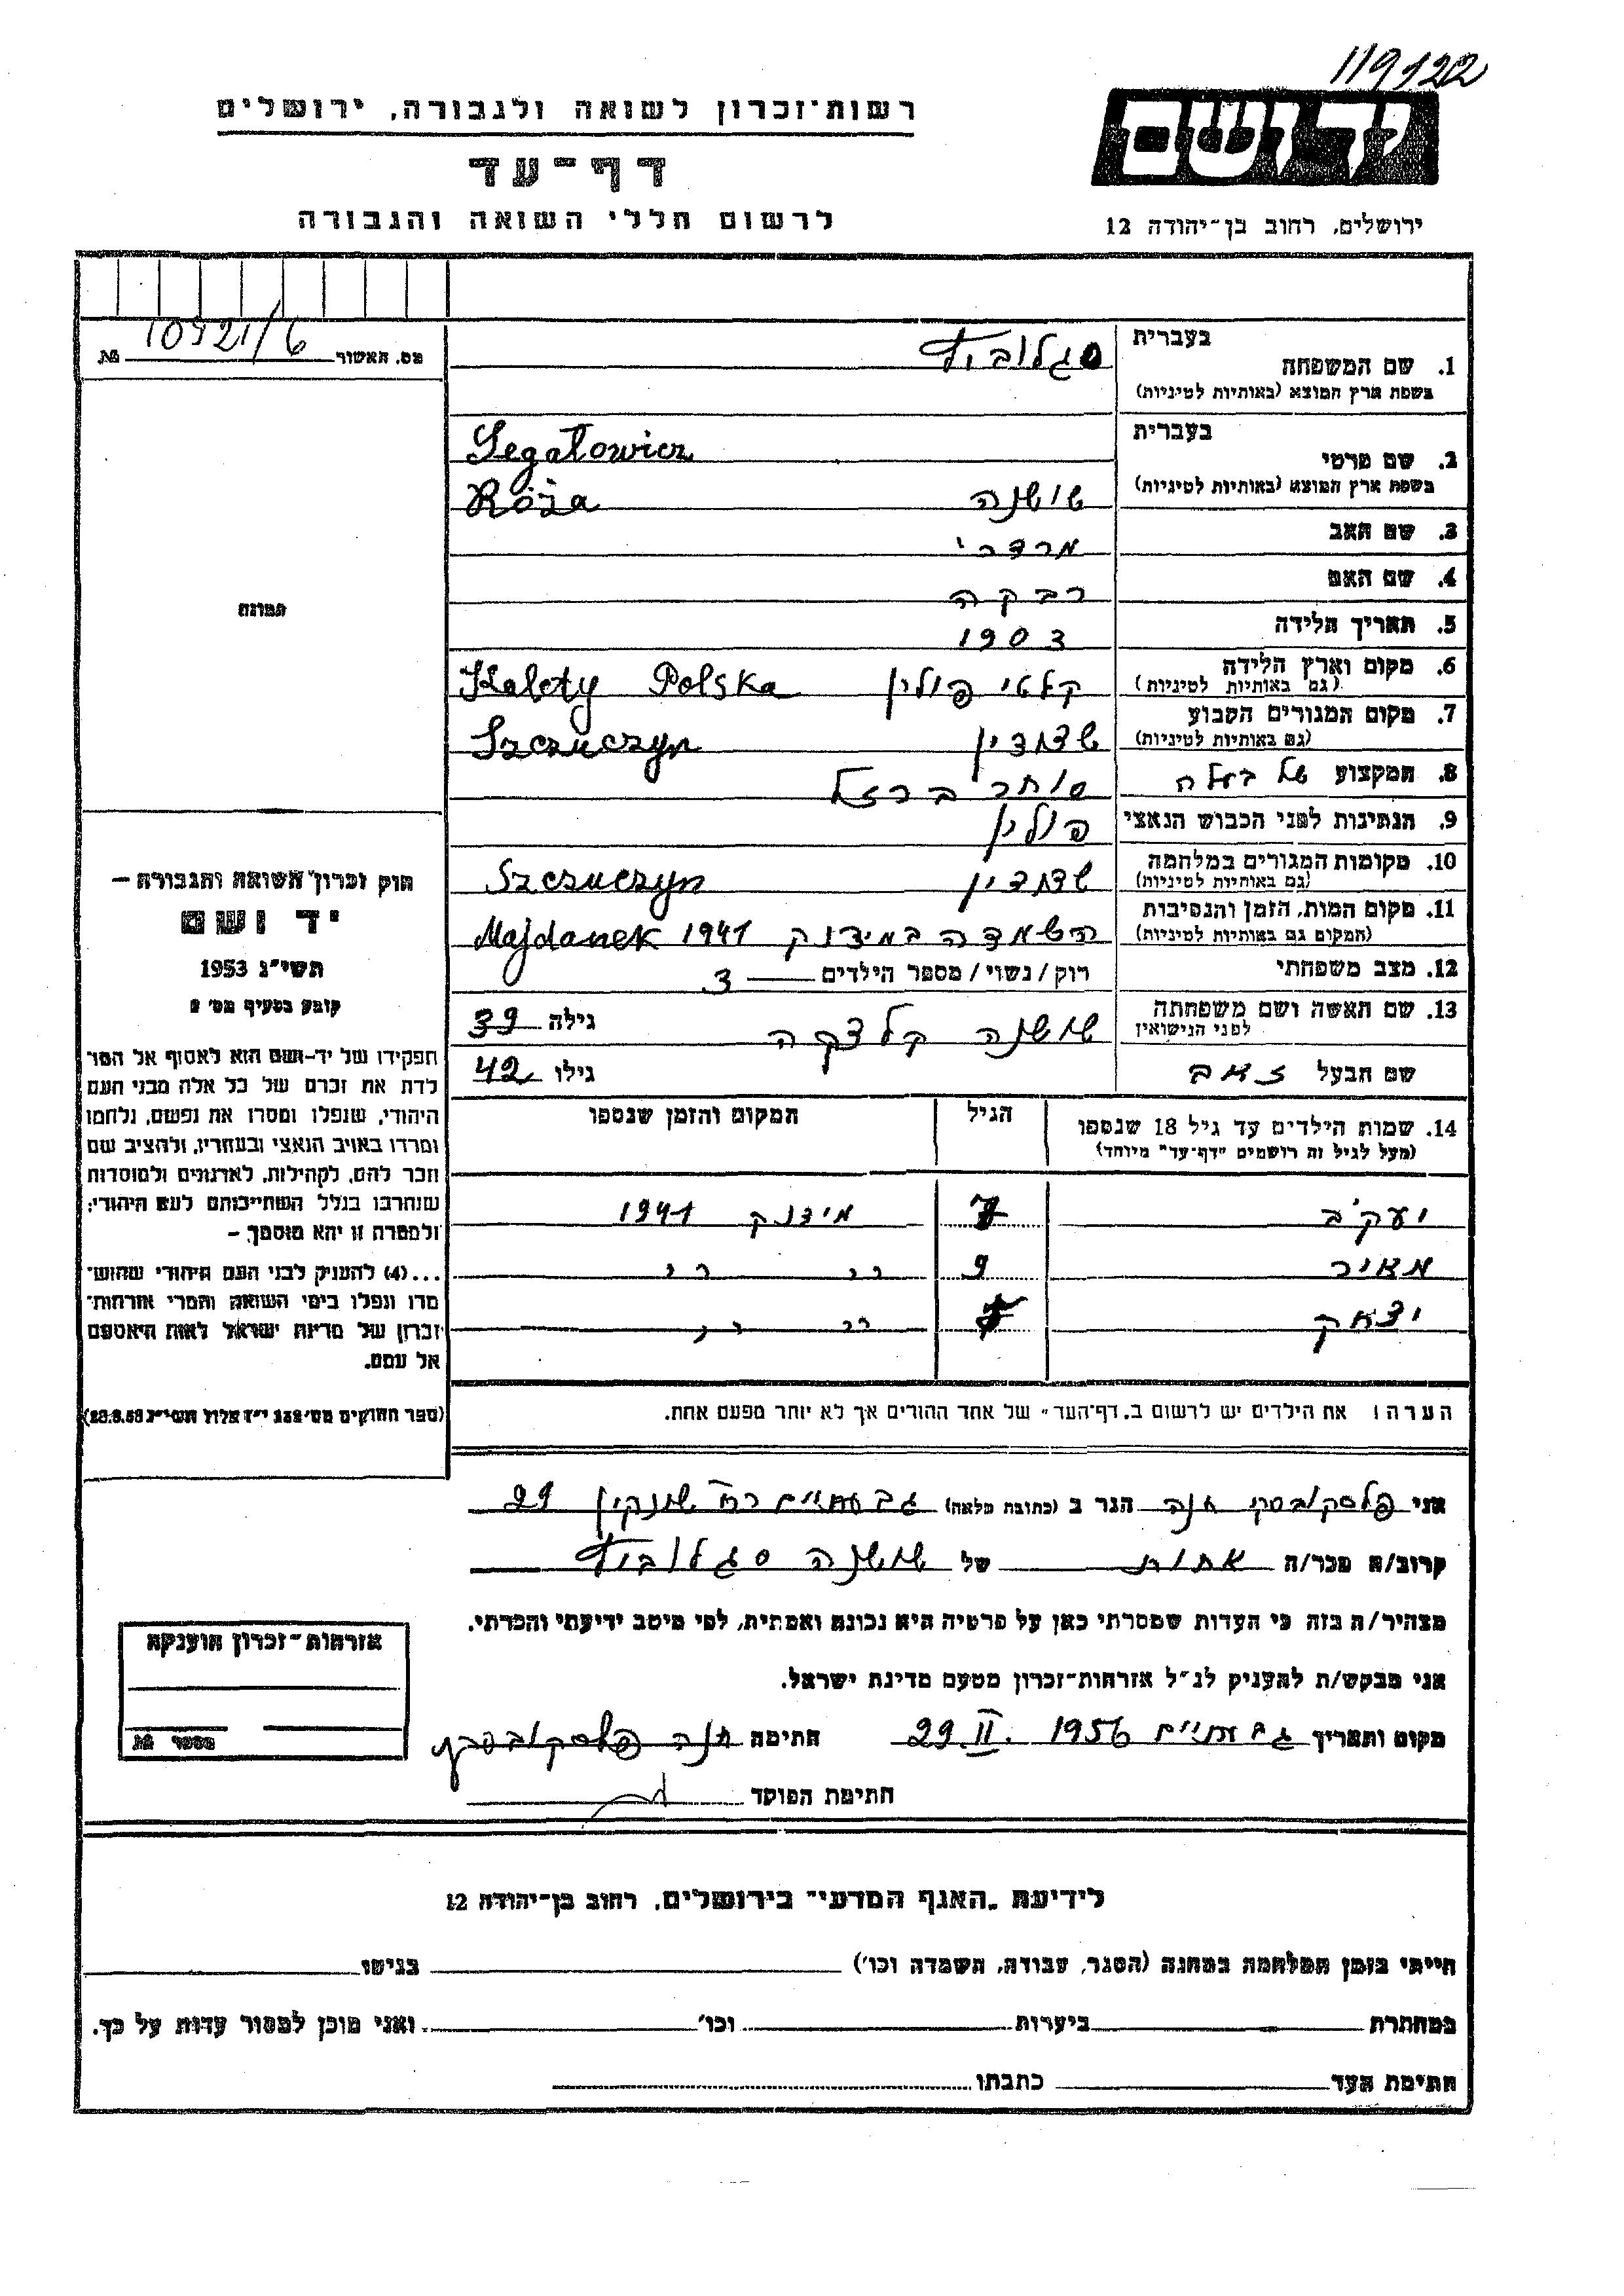 119122
יד ושם
רשות-זכרון לשואה ולגבורה, ירושלים
דף-עד
לרשום חללי השואה והגבורה
ירושלים, רחוב בן-יהודה 12
מס. האשור 10921/6 №
בעברית
1. שם המשפחה סגלוביץ
בשפת ארץ המוצא (באותיות לטיניות)
בעברית
Segałowicz
2. שם פרטי
בשפת ארץ המוצא (באותיות לטיניות) שושנה Róża
3. שם האב מרדכי
4. שם האם רבקה
5. תאריך הלידה 1903
6. מקום וארץ הלידה קלטי פולין Kalety Polska
(גם באותיות לטיניות)
7. מקום המגורים הקבוע שצוצין Szczuczyn
(גם באותיות לטיניות)
8. המקצוע של בעלה סוחר ברזל
9. הנתינות לפני הכבוש הנאצי פולין
10. מקומות המגורים במלחמה שצוצין Szczuczyn
(גם באותיות לטיניות)
11. מקום המות, הזמן והנסיבות השמדה במידנק 1941 Majdanek
(המקום גם באותיות לטיניות)
12. מצב משפחתי רוק/נשוי/מספר הילדים 3
13. שם האשה ושם משפחתה שושנה קלצקה גילה 39
לפני הנישואין
שם הבעל זאב גילו 42
14. שמות הילדים עד גיל 18 שנספו הגיל המקום והזמן שנספו
(מעל לגיל זה רושמים "דף-עד" מיוחד)
יעקב 7 מידנק 1941
מאיר 9 " "
יצחק " "
הערה: את הילדים יש לרשום ב"דף-העד" של אחד ההורים אך לא יותר מפעם אחת.
תמונה
חוק זכרון השואה והגבורה –
יד ושם
תשי"ג 1953
קובע בסעיף מס' 2
תפקידו של יד-ושם הוא לאסוף אל המו־
לדת את זכרם של כל אלה מבני העם
היהודי, שנפלו ומסרו את נפשם, נלחמו
ומרדו באויב הנאצי ובעוזריו, ולהציב שם
וזכר להם, לקהילות, לארגונים ולמוסדות
שנחרבו בגלל השתייכותם לעם היהודי;
ולמטרה זו יהא מוסמך –
...(4) להעניק לבני העם היהודי שהוש־
מדו ונפלו בימי השואה והמרי אזרחות־
זכרון של מדינת ישראל לאות היאספם
אל עמם.
(ספר החוקים מס' 132 י"ז אלול תשי"ג 28.8.53)
אני פלסקובסקי חנה הגר ב (כתובת מלאה) גבעתיים רח' שנקין 29
קרוב/ה מכר/ה אחות של שושנה סגלוביץ
מצהיר/ה בזה כי העדות שמסרתי כאן על פרטיה היא נכונה ואמתית, לפי מיטב ידיעתי והכרתי.
אני מבקש/ת להעניק לנ"ל אזרחות-זכרון מטעם מדינת ישראל.
מקום ותאריך גבעתיים 29.II.1956 חתימה חנה פלסקובסקי
חתימת הפוקד
אזרחות-זכרון הוענקה
מספר №
לידיעת "האגף המדעי" בירושלים, רחוב בן-יהודה 12
הייתי בזמן המלחמה במחנה (הסגר, עבודה, השמדה וכו') בגיטו
במחתרת ביערות וכו' ואני מוכן למסור עדות על כך.
חתימת העד כתבתו